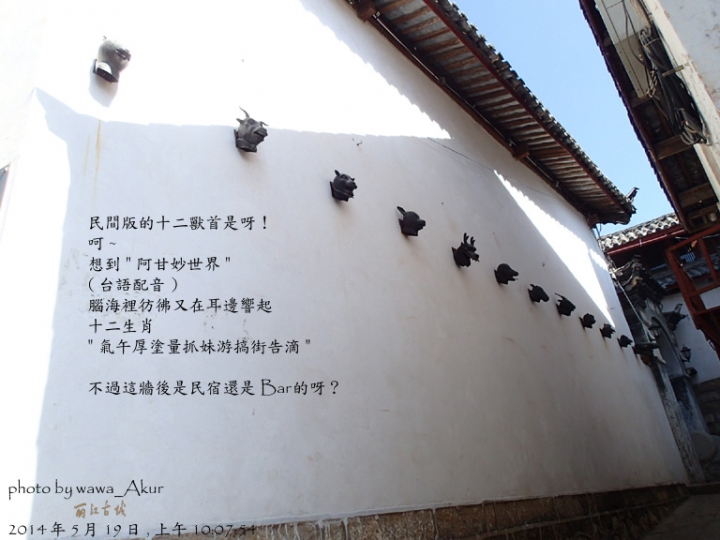 民間版的十二獸首是呀！
呵~
想到"阿甘妙世界"
(台語配音)
腦海裡彷彿又在耳邊響起
十二生肖
"氣午厚塗量抓妹游搞街告滴"
不過這牆後是民宿還是Bar的呀？
photo by wawa_Akur
丽江古城
2014年5月19日,上午10:07:54